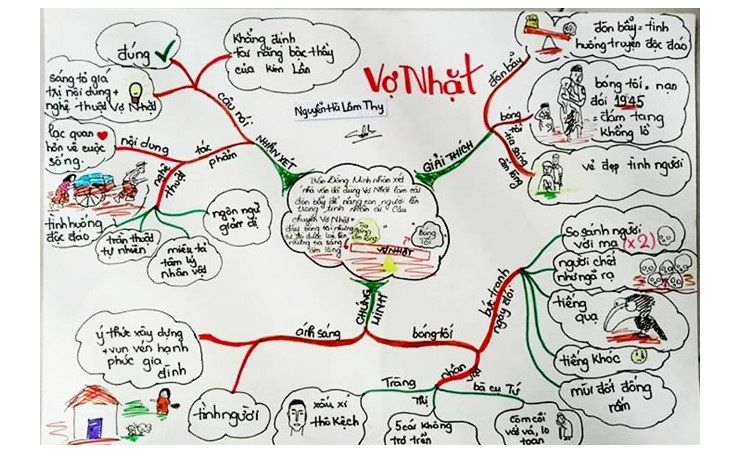 Vợ Nhặt
Nguyễn Hà Lâm Thy
đúng
Khẳng định
tài năng bậc thầy
của Kim Lân
sáng tỏ giá
trị nội dung +
nghệ thuật Vợ Nhặt
câu nói
NHẬN XÉT
lạc quan
hơn về cuộc
sống.
nội dung
tác
phẩm
nghệ
thuật
tình huống
độc đáo
trần thuật
tự nhiên
miêu tả
tâm lý
nhân vật
ngôn ngữ
giản dị
GIẢI THÍCH
đòn bẩy
đòn bẩy = tình
huống truyện độc đáo
bóng
tối
bóng tối = nạn
đói 1945
= đám tang
khổng lồ
tia sáng
ấm lòng
vẻ đẹp tình người
Trần Đồng Minh nhận xét
nhà văn đã dùng Vợ Nhặt làm cái
đòn bẩy để nâng con người lên
trong tình nhân ái. Câu
chuyện Vợ Nhặt
đầy bóng tối nhưng
từ đó được lóe lên
những tia sáng
ấm lòng
Bóng
tối
VỢ NHẶT
CHỨNG
MINH
ánh sáng
ý thức xây dựng
+ vun vén hạnh
phúc gia
đình
tình người
bóng tối
bức tranh
ngày đói
So sánh người
với ma (x2)
người chết
như ngả rạ
tiếng
quạ
tiếng khóc
mùi đốt đống
rấm
nhân vật
Tràng
xấu xí
thô kệch
Thị
5 cái không
trơ trẽn
bà cụ Tứ
Còm cõi
vất vả, lo
toan